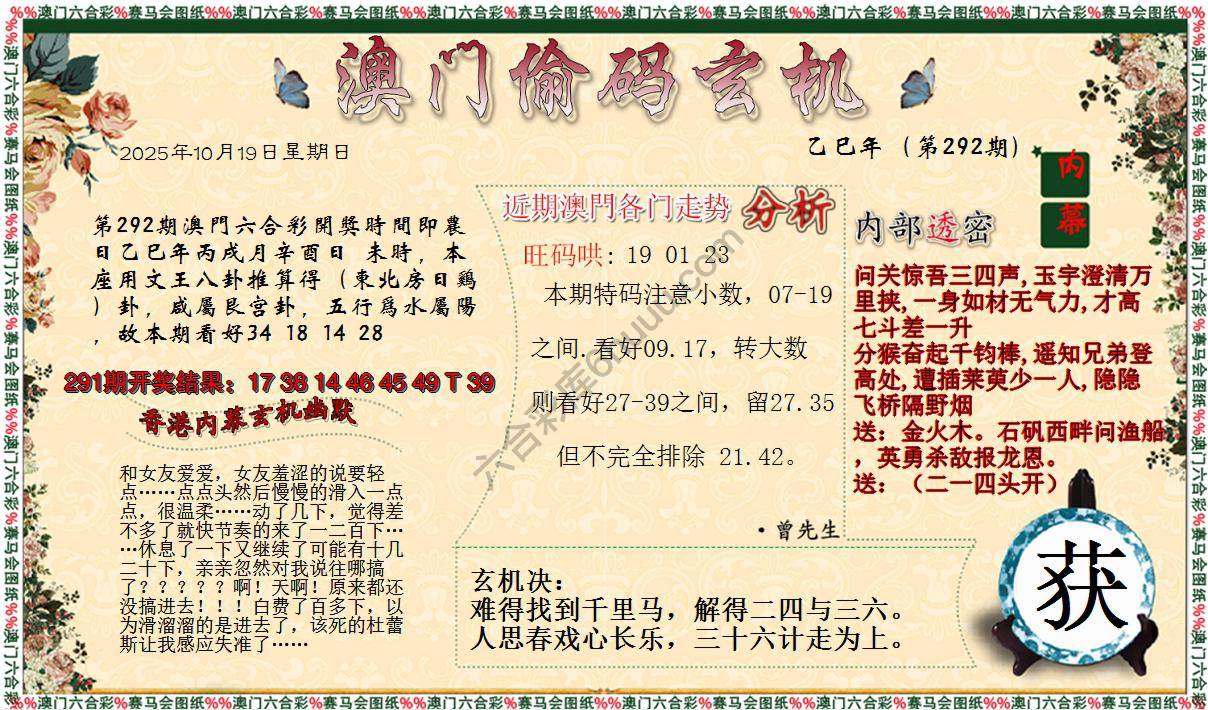 %%澳门六合彩%赛马会图纸%%澳门六合彩%赛马会图纸%%澳门六合彩%赛马会图纸%%澳门六合彩%赛马会图纸%%澳门六合彩%赛马会图纸%%澳门六合彩%赛马会图纸%%澳门六合彩%赛马会图纸%%
澳门偷码玄机
2025年10月19日星期日
乙巳年（第292期）
内
幕
第292期澳門六合彩開獎時間即農
日乙巳年丙戌月辛酉日 未時，本
座用文王八卦推算得（東北房日鷄
）卦，咸屬艮宫卦，五行爲水屬陽
，故本期看好34 18 14 28
291期开奖结果：17 38 14 46 45 49 T 39
香港内幕玄机幽默
和女友爱爱，女友羞涩的说要轻
点……点点头然后慢慢的滑入一点
点，很温柔……动了几下，觉得差
不多了就快节奏的来了一二百下…
…休息了一下又继续了可能有十几
二十下，亲亲忽然对我说往哪搞
了？？？？？啊！天啊！原来都还
没搞进去！！！白费了百多下，以
为滑溜溜的是进去了，该死的杜蕾
斯让我感应失准了……
近期澳門各门走势 分析
旺码哄: 19 01 23
本期特码注意小数，07-19
之间.看好09.17，转大数
则看好27-39之间，留27.35
但不完全排除 21.42。
·曾先生
内部透密
问关惊吾三四声,玉宇澄清万
里挟,一身如材无气力,才高
七斗差一升
分猴奋起千钧棒,遥知兄弟登
高处,遭插莱萸少一人,隐隐
飞桥隔野烟
送：金火木。石矶西畔问渔船
，英勇杀敌报龙恩。
送：（二一四头开）
玄机决：
难得找到千里马，解得二四与三六。
人思春戏心长乐，三十六计走为上。
获